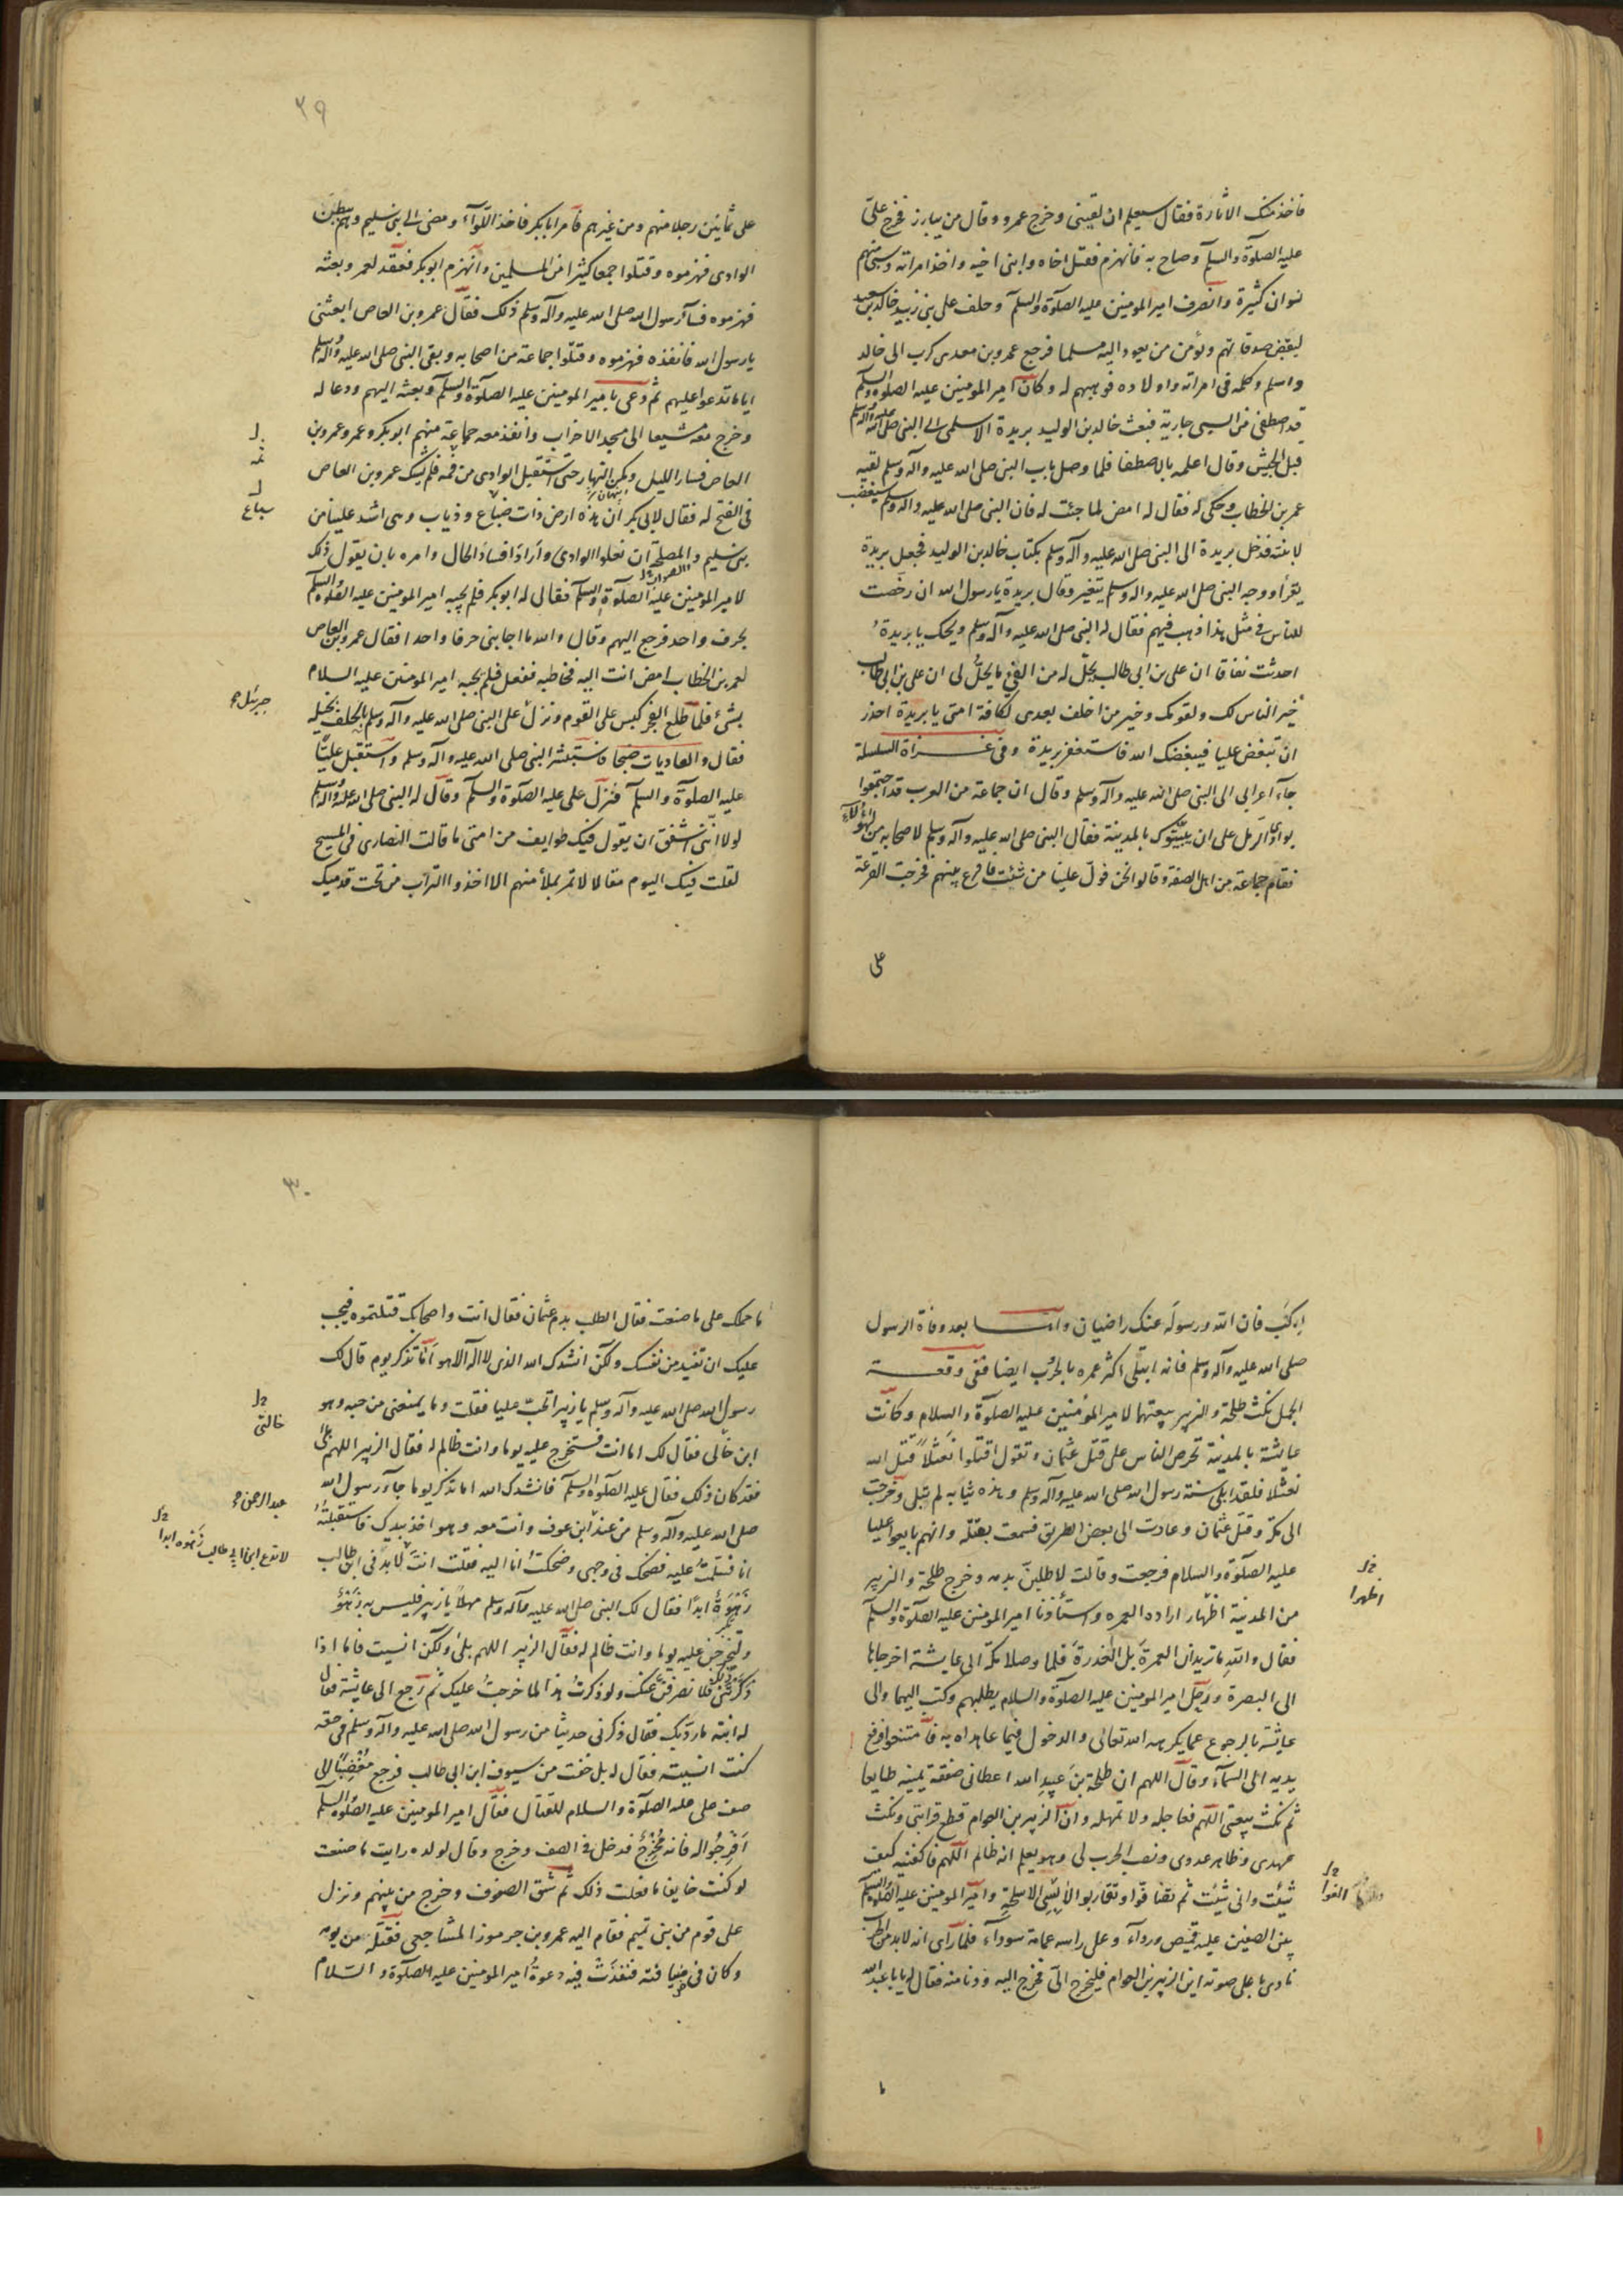 فاخذ منك الاثارة فقال سيعلم ان لقيني وخرج عمرو وقال من يبارز فخرج علىّ
عليه الصلوة والسلم وصاح به فانهزم فقتل اخاه وابنى اخيه واخذ امراته وسبى منهم
نسوان كثيرة وانصرف امير المومنين عليه الصلوة والسلم وخلف على بنى زبيد خالد بن سعيد
ليقبض صدقاتهم ويؤمن من يعود اليه مسلما فرجع عمرو بن معدى كرب الى خالد
واسلم وكلمه فى امراته واولاده فوهبهم له وكان امير المومنين عليه الصلوة والسلم
قد اصطفى من السبى جارية فبعث خالد بن الوليد بريدة الاسلمى الى النبى صلى الله عليه وآله وسلم
قبل الجيش وقال اعلمه بالاصطفا فلما وصل باب النبى صلى الله عليه وآله وسلم لقيه
عمر بن الخطاب وحكى له فقال له امض لما جئت له فان النبى صلى الله عليه واله وسلم سيغضب
لابنته فدخل بريدة الى النبى صلى الله عليه وآله وسلم بكتاب خالد بن الوليد فجعل بريدة
يقرأ ووجه النبى صلى الله عليه واله وسلم يتغير وقال بريدة يا رسول الله ان رخصت
للناس فى مثل هذا ذهب فيهم فقال له النبى صلى الله عليه وآله وسلم ويحك يا بريدة
احدثت نفاقا ان على بن ابى طالب يحلّ له من الفئ ما يحلّ لى ان على بن ابى طالب
خير الناس لك ولقومك وخير من اخلف بعدى لكافة امتى يا بريدة احذر
ان تبغض عليا فيبغضك الله فاستغفر بريدة وفى غزاة السلسلة
جآء اعرابى الى النبى صلى الله عليه وآله وسلم وقال ان جماعة من العرب قد اجتمعوا
بوادى الرمل على ان يبيّتوك بالمدينة فقال النبى صلى الله عليه وآله وسلم لاصحابه من لهؤلآء
فقام جماعة من اهل الصفة وقالوا نحن فولّ علينا من شئت فاقرع بينهم فخرجت القرعة
على
٢٩
على ثمانين رجلا منهم ومن غيرهم فامر ابا بكر فاخذ اللوآء ومضى الى بنى سليم وهم ببطن
الوادى فهزموه وقتلوا جمعا كثيرا من المسلمين وانهزم ابو بكر فعقد لعمر وبعثه
فهزموه فسآء رسول الله صلى الله عليه وآله وسلم ذلك فقال عمرو بن العاص ابعثنى
يا رسول الله فانفذه فهزموه وقتلوا جماعة من اصحابه وبقى النبى صلى الله عليه وآله وسلم
اياما تدعوا عليهم ثم دعى بامير المومنين عليه الصلوة والسلم وبعثه اليهم ودعا له
وخرج معه مشيعا الى مسجد الاحزاب وانفذ معه جماعة منهم ابو بكر وعمر وعمرو بن
العاص فسار الليل وكمن النهار حتى استقبل الوادى من فمه فلم يشك عمرو بن العاص
فى الفتح له فقال لابى بكر ان هذه ارض ذات ضباع وذياب وهى اشد علينا من
سباع
بنى سليم والمصلحة ان نعلوا الوادى واراد افساد الحال وامره بان يقول ذلك
لامير المومنين عليه الصلوة والسلم فقال له ابو بكر فلم يجبه امير المومنين عليه الصلوة والسلم
بحرف واحد فرجع اليهم وقال والله ما اجابنى حرفا واحدا فقال عمرو بن العاص
لعمر بن الخطاب امض انت اليه فخاطبه ففعل فلم يجبه امير المومنين عليه السلام
بشئ فلما طلع الفجر كبس على القوم ونزل على النبى صلى الله عليه وآله وسلم بالحلف بخيله
جبرئيل
فقال والعاديات ضبحا فاستبشر النبى صلى الله عليه وآله وسلم واستقبل عليّا
عليه الصلوة والسلم فنزل على عليه الصلوة والسلم وقال له النبى صلى الله عليه وآله وسلم
لولا اننى اشفق ان يقول فيك طوايف من امتى ما قالت النصارى فى المسيح
لقلت فيك اليوم مقالا لا تمر بملأ منهم الا اخذوا التراب من تحت قدميك
اركب فان الله ورسوله عنك راضيان وامّا بعد وفاة الرسول
صلى الله عليه وآله وسلم فانه ابتلى اكثر عمره بالحرب ايضا ففى وقعة
الجمل نكث طلحة والزبير بيعتهما لامير المؤمنين عليه الصلوة والسلام وكانت
عايشة بالمدينة تحرص الناس على قتل عثمان وتقول اقتلوا نعثلا قتل الله
نعثلا فلقد ابلى سنة رسول الله صلى الله عليه وآله وسلم وهذه ثيابه لم تبل وخرجت
الى مكة وقتل عثمان وعادت الى بعض الطريق فسمعت بقتله وانهم بايعوا عليا
عليه الصلوة والسلام فرجعت وقالت لاطلبنّ بدمه وخرج طلحة والزبير
من المدينة اظهار ارادة العمره واستأذنا امير المومنين عليه الصلوة والسلم
اظهرا
فقال والله ما تريدان العمرة بل الغدرة فلما وصلا مكة الى عايشة اخرجاها
الى البصرة ورحل امير المومنين عليه الصلوة والسلام يطلبهم وكتب اليهما والى
عايشة بالرجوع عما يكرهه الله تعالى والدخول فيما عاهداه به فامتنعوا فرفع
يديه الى السمآء وقال اللهم ان طلحة بن عبيد الله اعطانى صفقة يمينه طايعا
ثم نكث بيعتى اللهم فعاجله ولا تمهله وان الزبير بن العوام قطع قرابتى ونكث
عهدى وظاهر عدوى ونصب الحرب لى وهو يعلم انه ظالم اللهم فاكفنيه كيف
شئت وانى شئت ثم تقافوا وتقاربوا لابسى الاسلحة وامير المومنين عليه الصلوة والسلم
بين الصفين عليه قميص وردآء وعلى راسه عمامة سودآء فلما رآى انه لابد من الحرب
نادى باعلى صوته اين الزبير بن العوام فليخرج الىّ فخرج اليه ودنا منه فقال له يا ابا عبد الله
ما
٣٠
ما حملك على ما صنعت فقال الطلب بدم عثمان فقال انت واصحابك قتلتموه فيجب
عليك ان تقيد من نفسك ولكن انشدك الله الذى لا اله الا هو اما تذكر يوم قال لك
رسول الله صلى الله عليه وآله وسلم يا زبير اتحبّ عليا فقلت وما يمنعنى من حبه وهو
ابن خالى فقال لك اما انت فستخرج عليه يوما وانت ظالم له فقال الزبير اللهم بلى
خالتى
فقد كان ذلك فقال عليه الصلوة والسلم فانشدك الله اما تذكر يوما جآء رسول الله
صلى الله عليه وآله وسلم من عند ابن عوف وانت معه وهو اخذ بيدك فاستقبلته
عبد الرحمن
انا فسلمت عليه فضحك فى وجهى وضحكت انا اليه فقلت انت
لا تدع ابن ابى طالب زهوه ابدا
زهوة ابدا فقال لك النبى صلى الله عليه وآله وسلم مهلا يا زبير فليس به زهو
ولتخرجن عليه يوما وانت ظالم له فقال الزبير اللهم بلى ولكن انسيت فاما اذا
ذكرتنى ذلك فلانصرفن عنك ولو ذكرت هذا لما خرجت عليك ثم رجع الى عايشة فقال
له ابنه ما ردّك فقال ذكرنى حديثا من رسول الله صلى الله عليه وآله وسلم فى حقه
كنت انسيته فقال له بل خفت من سيوف ابن ابى طالب فرجع مغضبا الى
صف على عليه الصلوة والسلام للقتال فقال امير المومنين عليه الصلوة والسلم
افرجوا له فانه محرج فدخل فى الصف وخرج وقال لولده رايت ما صنعت
لو كنت خايفا ما فعلت ذلك ثم شق الصفوف وخرج من بينهم ونزل
على قوم من بنى تميم فقام اليه عمرو بن جرموز المشاجعى فقتله من يومه
وكان فى ضيافته فنفذت فيه دعوة امير المومنين عليه الصلوة والسلام